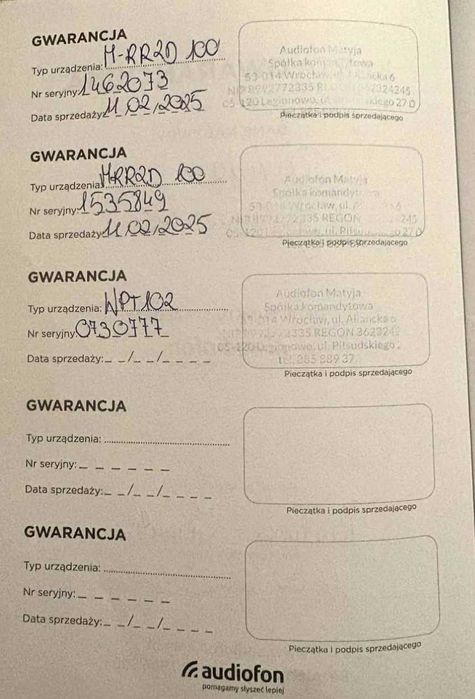 GWARANCJA
Typ urządzenia: M-RR2D 100
Nr seryjny: 1462073
Data sprzedaży: 11.02.2025
Audiofon Matyja
Spółka komandytowa
53-014 Wrocław, ul.
05-120 Legionowo, ul.
Pieczątka i podpis sprzedającego
GWARANCJA
Typ urządzenia: M-RR2D 100
Nr seryjny: 1535849
Data sprzedaży: 11.02.2025
Audiofon Matyja
Spółka komandytowa
REGON
Pieczątka i podpis sprzedającego
GWARANCJA
Typ urządzenia: WPT102
Nr seryjny: 0730777
Data sprzedaży: _ _/_ _/_ _ _ _
Audiofon Matyja
Spółka komandytowa
Wrocław, ul.
REGON
05-120 Legionowo, ul. Piłsudskiego
Pieczątka i podpis sprzedającego
GWARANCJA
Typ urządzenia:
Nr seryjny: _ _ _ _ _ _
Data sprzedaży: _ _/_ _/_ _ _ _
Pieczątka i podpis sprzedającego
GWARANCJA
Typ urządzenia:
Nr seryjny: _ _ _ _ _ _
Data sprzedaży: _ _/_ _/_ _ _ _
Pieczątka i podpis sprzedającego
audiofon
pomagamy słyszeć lepiej